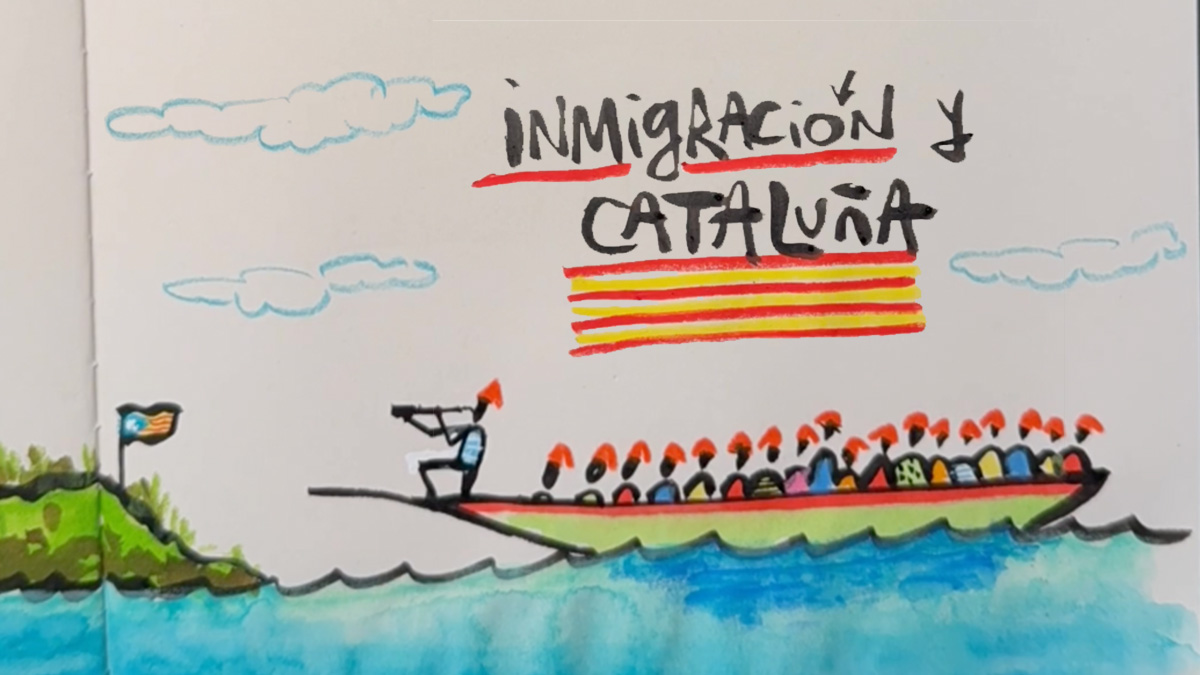 INMIGRACIÓN y
CATALUÑA